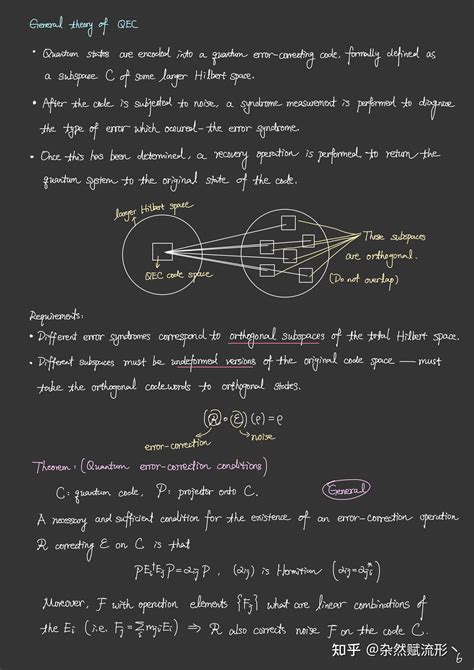 General theory of QEC
• Quantum states are encoded into a quantum error-correcting code, formally defined as
a subspace C of some larger Hilbert space.
• After the code is subjected to noise, a syndrome measurement is performed to diagnose
the type of error which occured - the error syndrome.
• Once this has been determined, a recovery operation is performed to return the
quantum system to the original state of the code.
larger Hilbert space
QEC code space
These subspaces
are orthogonal.
(Do not overlap)
Requirements:
• Different error syndromes correspond to orthogonal subspaces of the total Hilbert space.
• Different subspaces must be undeformed versions of the original code space — must
take the orthogonal codewords to orthogonal states.
(R ∘ E)(ρ) = ρ
error-correction
noise
Theorem: (Quantum error-correction conditions)
C: quantum code, P: projector onto C.
General
A necessary and sufficient condition for the existence of an error-correction operation
R correcting E on C is that
PEᵢ†EⱼP = αᵢⱼP, (αᵢⱼ) is Hermitian (αᵢⱼ = αⱼᵢ*)
Moreover, F with operation elements {Fⱼ} what are linear combinations of
the Eᵢ (i.e. Fⱼ = Σᵢ mⱼᵢEᵢ) ⇒ R also corrects noise F on the code C.
知乎 @杂然赋流形
6